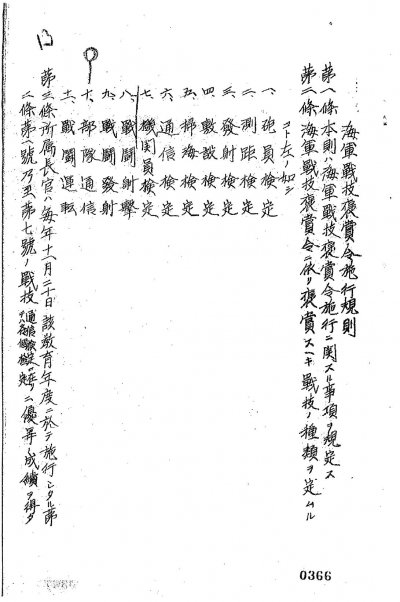 海軍戰技褒賞令施行規則
第一條本則ハ海軍戰技褒賞令施行ニ関スル事項ヲ規定ス
第二條海軍戰技褒賞令ニ依リ褒賞スヘキ戰技ノ種類ヲ定ムル
コト左ノ如シ
一、砲員検定
二、測距検定
三、發射検定
四、敷設検定
五、掃海検定
六、通信検定
七、機関員検定
八、戰闘射撃
九、戰闘發射
十、部隊通信
十一、戰闘運転
第三條所属長官ハ毎年十一月二十日該教育年度ニ於テ施行シタル第
二條第一號乃至第七號ノ戰技ニ優等ノ成績ヲ得タ
0366